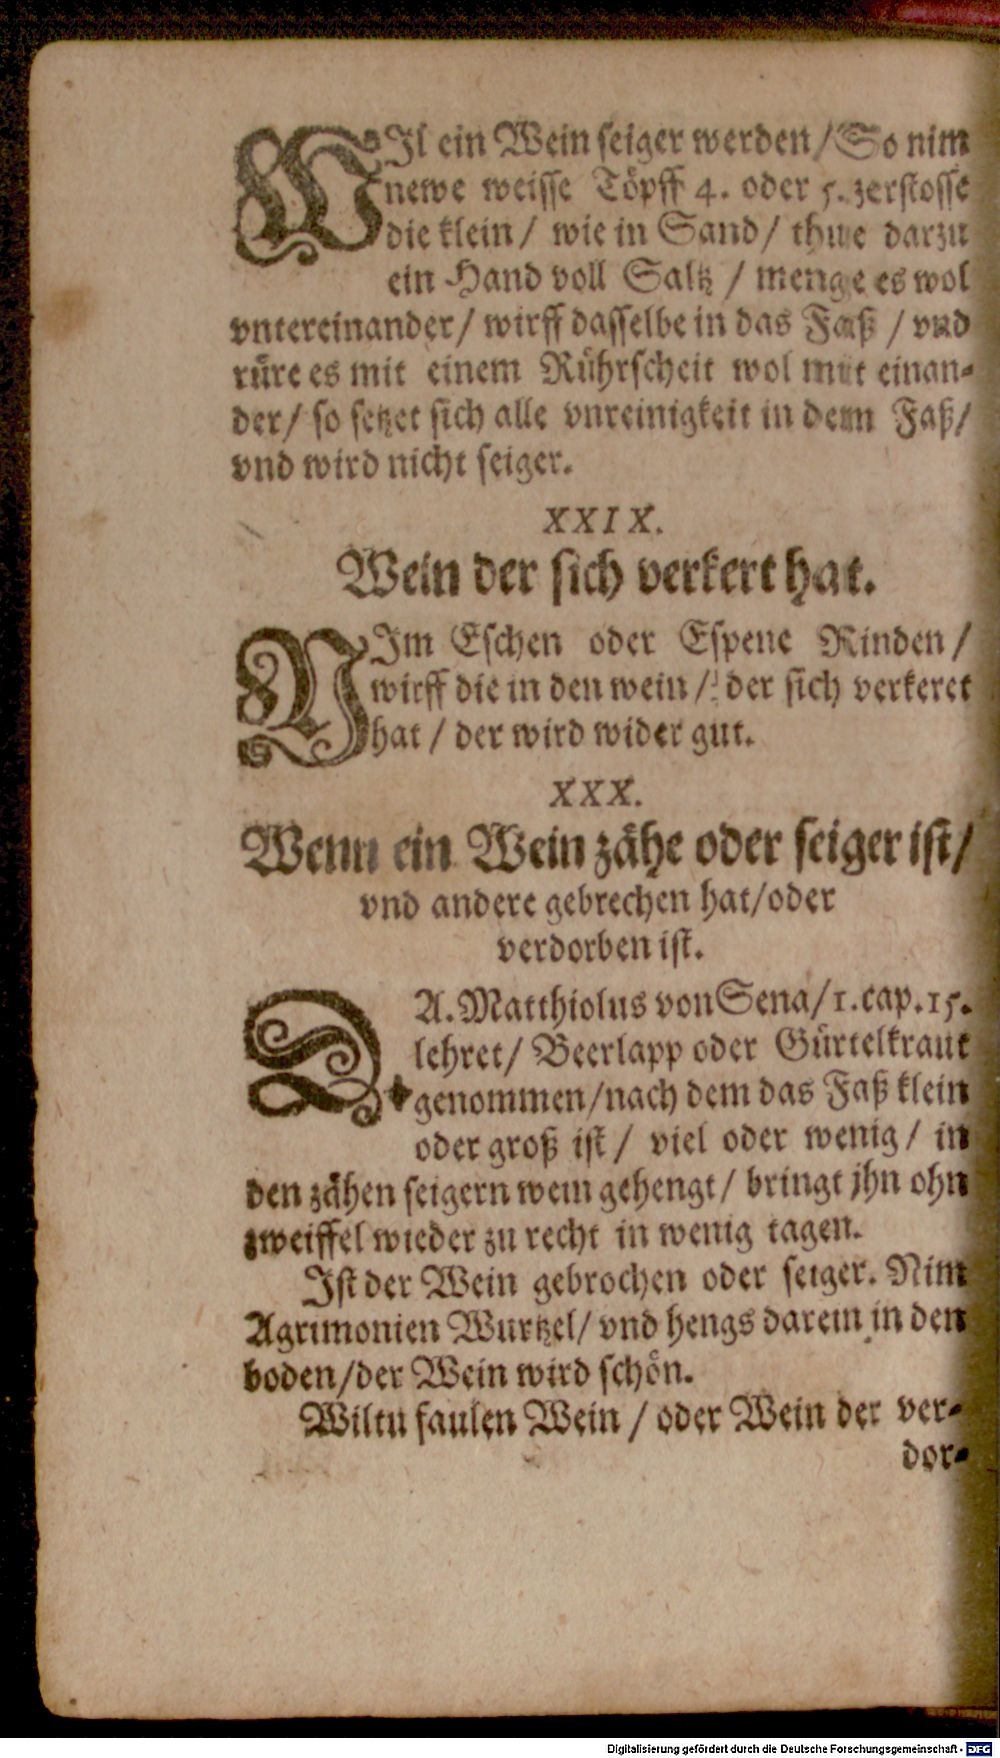 WIl ein Wein seiger werden / So nim
newe weisse Töpff 4. oder 5. zerstosse
die klein / wie in Sand / thue darzu
ein Hand voll Saltz / menge es wol
vntereinander / wirff dasselbe in das Faß / vnd
rüre es mit einem Rührscheit wol mit einan-
der / so setzet sich alle vnreinigkeit in dem Faß /
vnd wird nicht seiger.
XXIX.
Wein der sich verkert hat.
NIm Eschen oder Espene Rinden /
wirff die in den wein / der sich verkeret
hat / der wird wider gut.
XXX.
Wenn ein Wein zähe oder seiger ist /
vnd andere gebrechen hat / oder
verdorben ist.
A. Matthiolus von Sena / 1. cap. 15.
lehret / Beerlapp oder Gürtelkraut
genommen / nach dem das Faß klein
oder groß ist / viel oder wenig / in
den zähen seigern wein gehengt / bringt jhn ohn
zweiffel wieder zu recht in wenig tagen.
Ist der Wein gebrochen oder seiger. Nim
Agrimonien Wurtzel / vnd hengs darein in den
boden / der Wein wird schön.
Wiltu faulen Wein / oder Wein der ver-
dor-
Digitalisierung gefördert durch die Deutsche Forschungsgemeinschaft - DFG